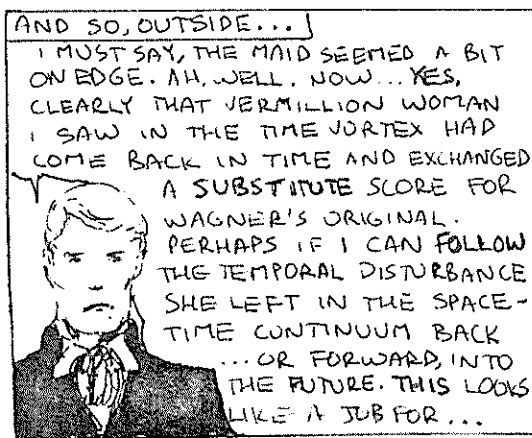 AND SO, OUTSIDE...
I MUST SAY, THE MAID SEEMED A BIT
ON EDGE. AH, WELL. NOW... YES,
CLEARLY THAT VERMILLION WOMAN
I SAW IN THE TIME VORTEX HAD
COME BACK IN TIME AND EXCHANGED
A SUBSTITUTE SCORE FOR
WAGNER'S ORIGINAL.
PERHAPS IF I CAN FOLLOW
THE TEMPORAL DISTURBANCE
SHE LEFT IN THE SPACE-
TIME CONTINUUM BACK
...OR FORWARD, INTO
THE FUTURE. THIS LOOKS
LIKE A JOB FOR...